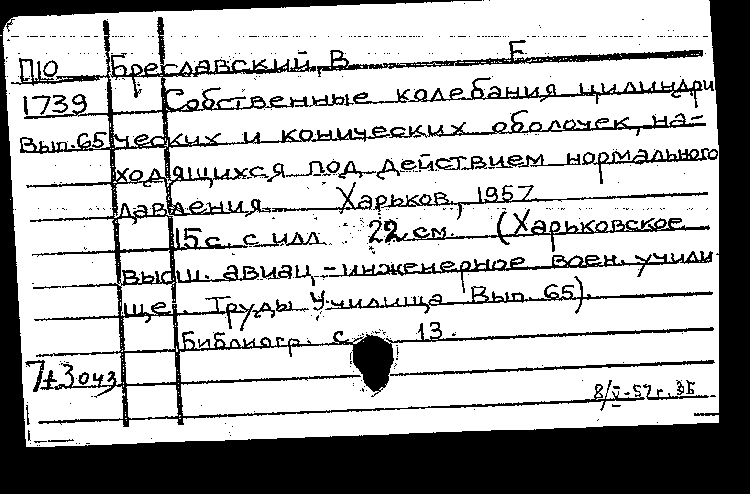 П10 Бреславский, В Е
1739 Собственные колебания цилиндри
Вып. 65 ческих и конических оболочек, на-
ходящихся под действием нормального
давления Харьков, 1957
15 с. с илл 22 см. (Харьковское
высш. авиац-инженерное воен. учили
ще. Труды Училища Вып. 65).
Библиогр. с 13.
7+3043
8/V-57г.